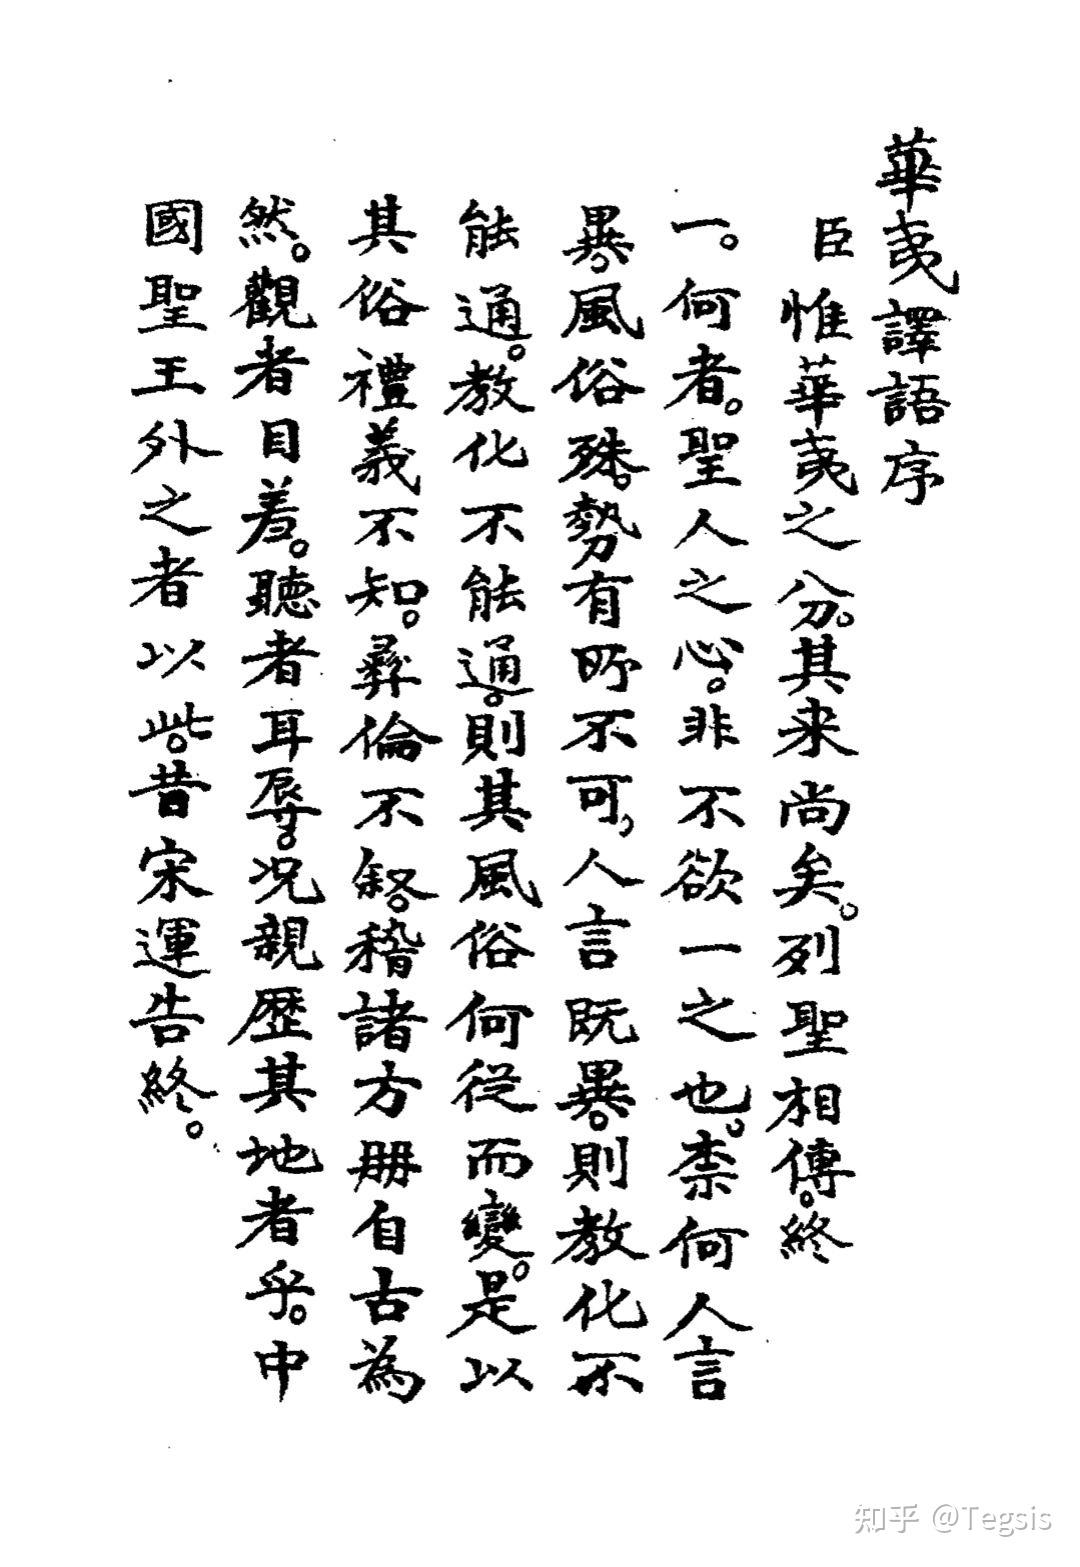 華夷譯語序
臣惟華夷之分。其来尚矣。列聖相傳。終
一。何者。聖人之心。非不欲一之也。柰何人言
異。風俗殊。勢有所不可，人言既異。則教化不
能通。教化不能通。則其風俗何從而變。是以
其俗禮義不知。彝倫不叙。稽諸方册自古為
然。觀者目羞。聽者耳辱。况親歷其地者乎。中
國聖王外之者以此。昔宋運告終。
知乎 @Tegsis